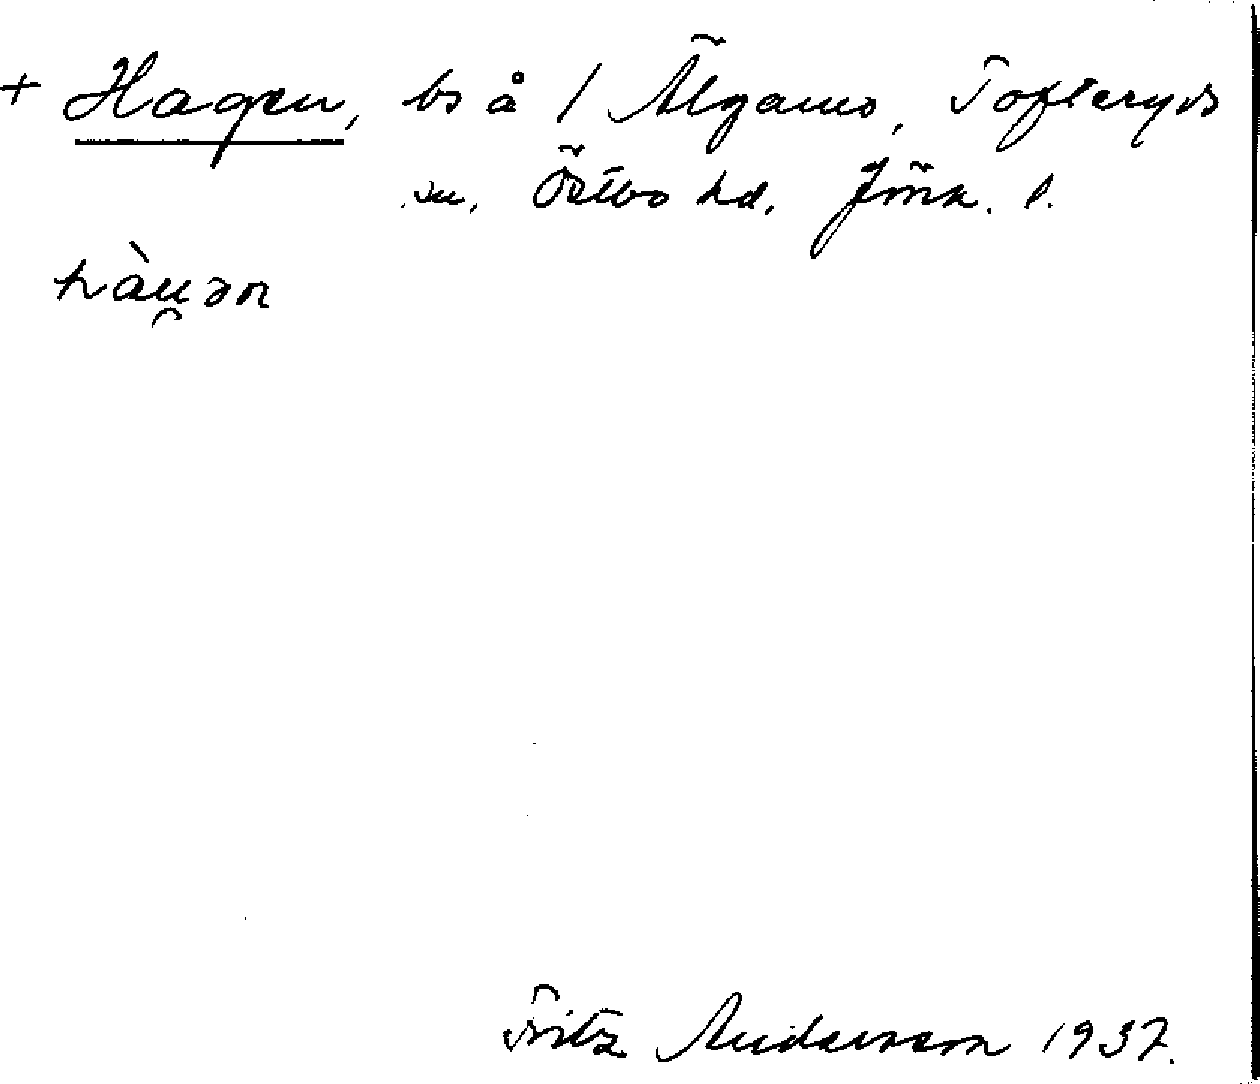 + Hagen, bs å 1 Älganäs, Tofteryds
sn. Östbo hd. Jönk. l.
hàu̯ən
Fritz Anderson 1937.